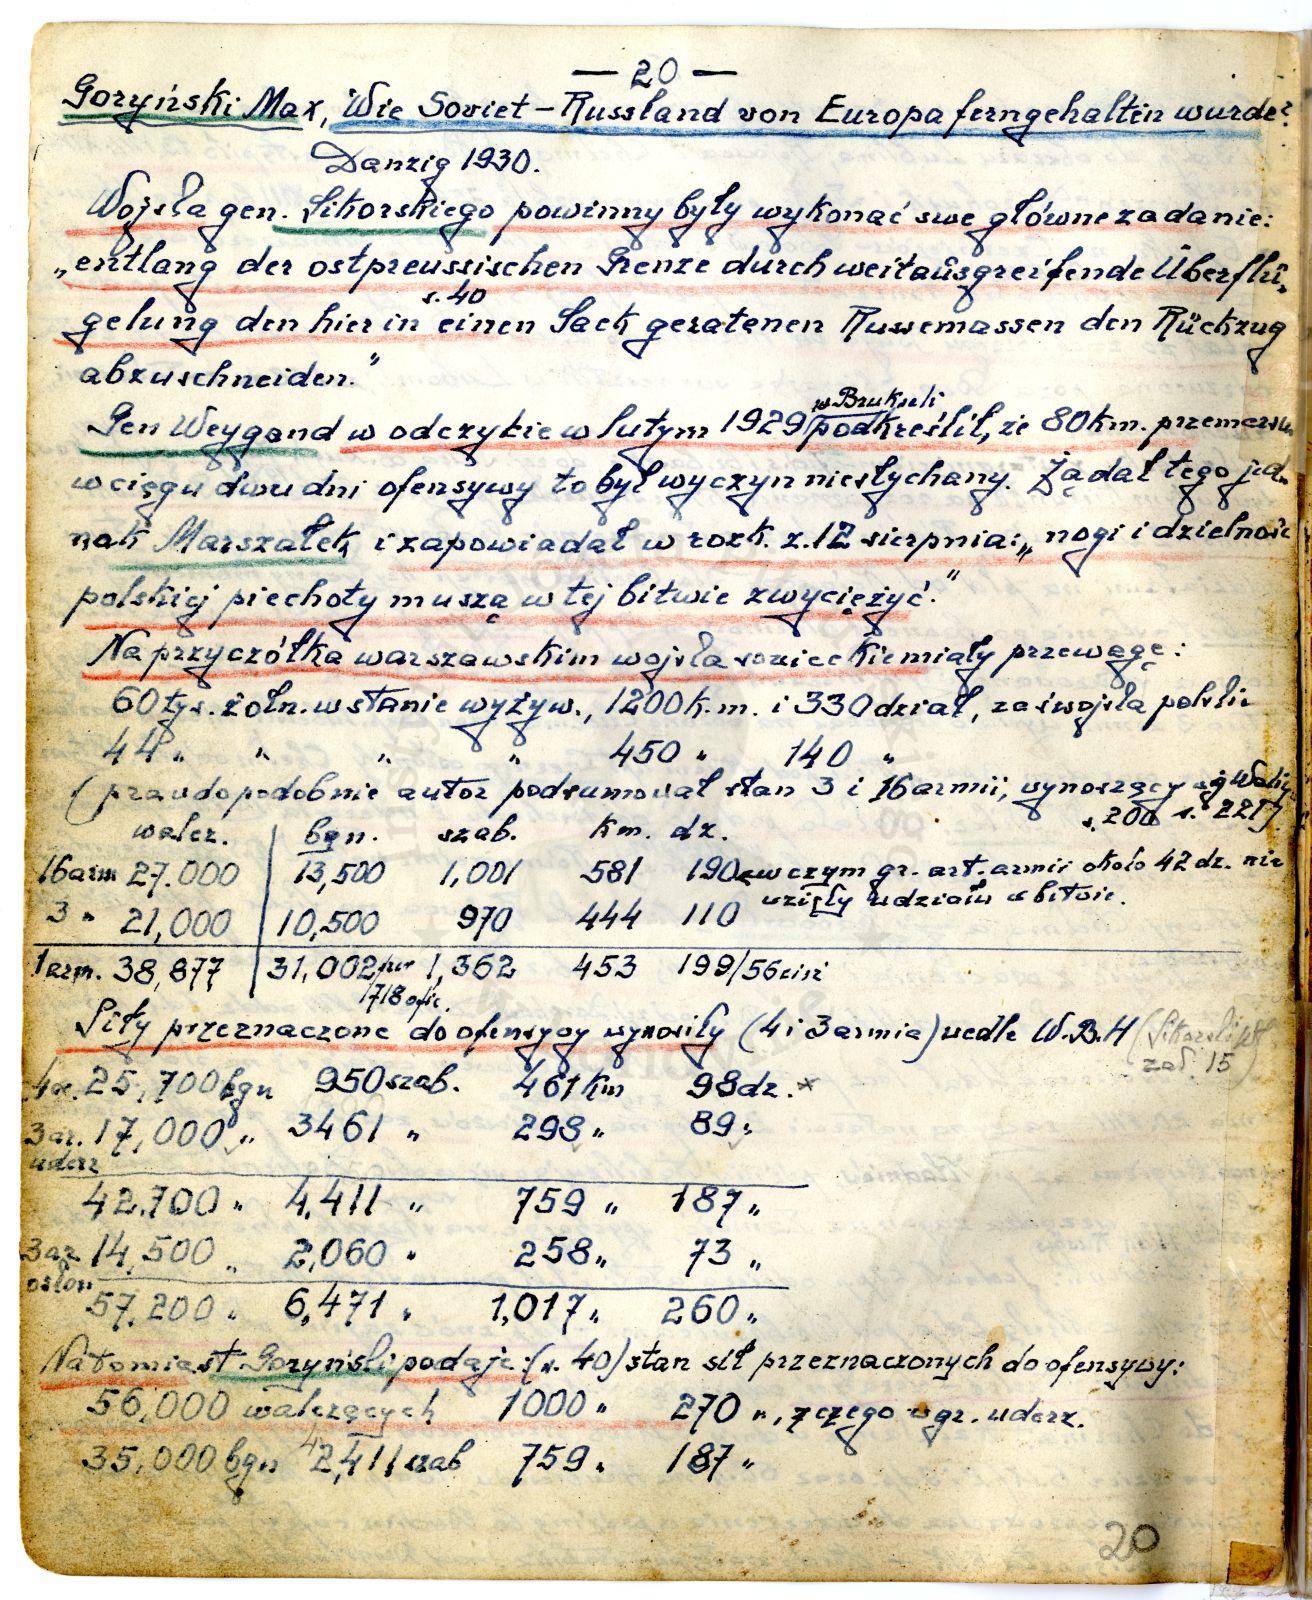 — 20 —
Goryński Max, Wie Soviet – Russland von Europa ferngehalten wurde?
Danzig 1930.
Wojska gen. Sikorskiego powinny były wykonać swe główne zadanie:
„entlang der ostpreussischen Grenze durch weitausgreifende Überflü„
s. 40
gelung den hier in einen Sack geratenen Russemassen den Rückzug
abzuschneiden."
w Brukseli
Gen Weygand w odczycie w lutym 1929 podkreślił, że 80 km. przemarszu
w ciągu dwu dni ofensywy to był wyczyn niesłychany. Żądał tego jed„
nak Marszałek i zapowiadał w rozk. z. 12 sierpnia: „nogi i dzielność
polskiej piechoty muszą w tej bitwie zwyciężyć."
Na przyczółka warszawskim wojska sowieckie miały przewagę:
60 tys. żołn. w stanie wyżyw., 1200 k.m. i 330 dział, zaś wojska polskie
44 „ „ „ „ 450 „ 140 „
(prawdopodobnie autor podsumował stan 3 i 16 armii, wynoszący wg
s. 200 s. 221)
walcz. bgn. szab. km. dz.
16 arm 27.000 13,500 1,001 581 190 w czym gr. art. armii około 42 dz. nie
wzięły udziału w bitwie.
3 „ 21,000 10,500 970 444 110
1 arm. 38,877 31,002 1,362 453 199/56
1718 ofic.
Siły przeznaczone do ofensywy wynosiły (4 i 3 armia) wedle W.B.H (Sikorski
zał. 15)
4 ar. 25,700 bgn 950 szab. 461 km 98 dz. *
3 ar. 17,000 „ 3461 „ 298 „ 89 „
uderz
42.700 „ 4,411 „ 759 „ 187 „
3 ar 14,500 „ 2,060 „ 258 „ 73 „
osłon
57.200 „ 6,471 „ 1,017 „ 260 „
Natomiast Goryński podaje: (s. 40) stan sił przeznaczonych do ofensywy:
56,000 walczących 1000 „ 270 „, z czego w gr. uderz.
4
35,000 bgn 2,411 szab 759 „ 187 „
20